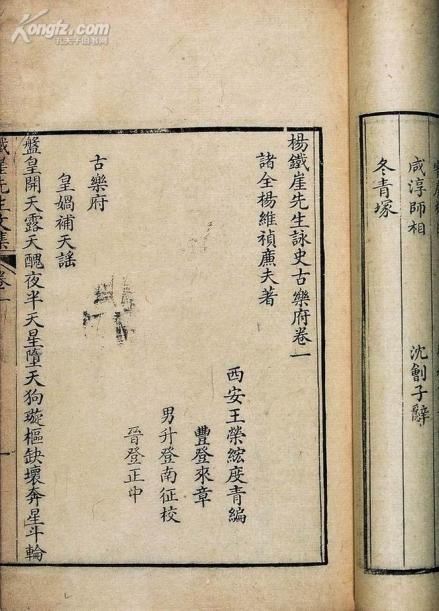 Kongfz.com
孔夫子旧书网
咸淳師相
沈劊子辭
冬青塚
楊鐵崖先生詠史古樂府卷一
諸全楊維禎廉夫著
西安王榮綋虔青編
豐登來章
男升登南征校
晉登正中
古樂府
皇媧補天謠
盤皇開天露天醜夜半天星墮天狗璇樞缺壞奔星斗輪
鐵崖先生文集
卷一
一